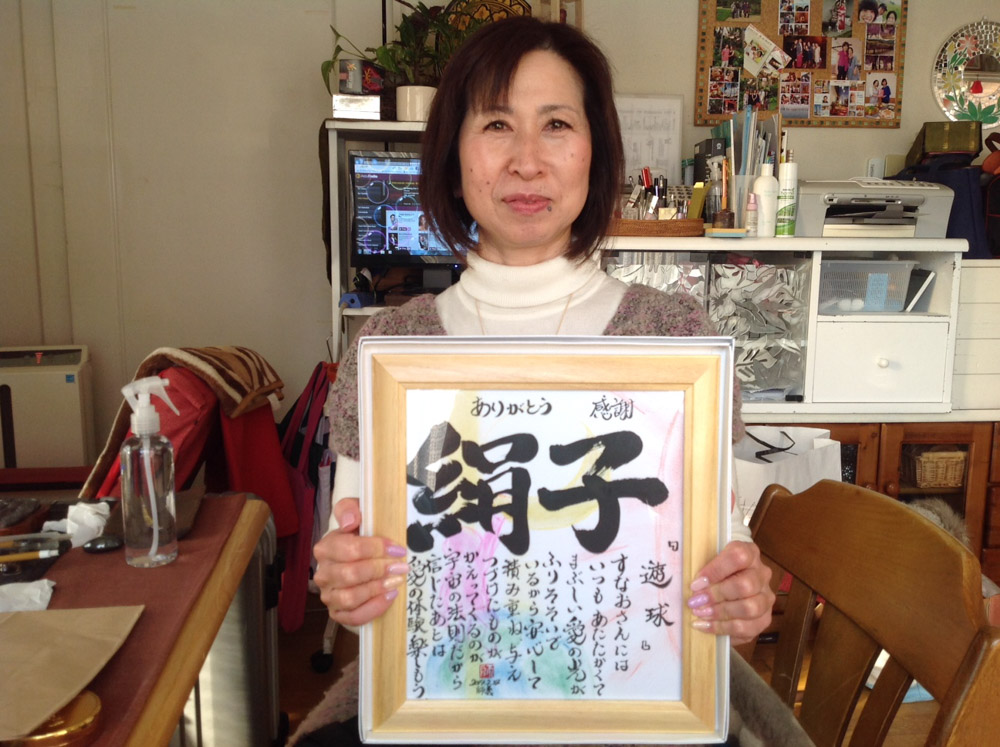 ありがとう 感謝
絹子
『遊球』
すなおさんには
いつもあたたかくて
まぶしい愛の光が
ふりそそいで
いるから安心して
積み重ね与え
つづけたものが
かえってくるのが
宇宙の法則だから
信じたあとは
愛の体験楽しもう